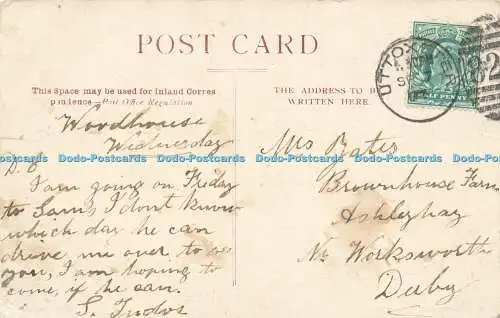 POST CARD
This Space may be used for Inland Corres
pondence—Post Office Regulation
THE ADDRESS TO B
WRITTEN HERE.
UTTOX
Woodhouse
Wednesday
Dodo-Postcards Dodo-Postcards Dodo-Postcards Dodo-Postcards Dodo-Postcards Dodo-Postcards
D. E.
I am going on Friday
to Sams I don't know
which day he can
drive me over to see
you, I am hoping to
come, if he can.
S.
Mrs Bates
Brownhouse Farm
Ashleyhay
Nr Worksworth
Derby